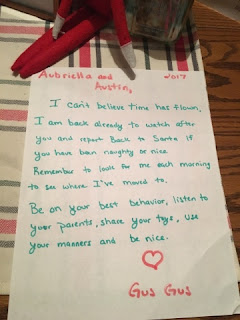 Aubriella and 2017
Austin,
I can't believe time has flown,
I am back already to watch after
you and report Back to Santa if
you have been naughty or nice.
Remember to look for me each morning
to see where I've moved to.
Be on your best behavior, listen to
your parents, share your toys, use
your manners and be nice.
Gus Gus